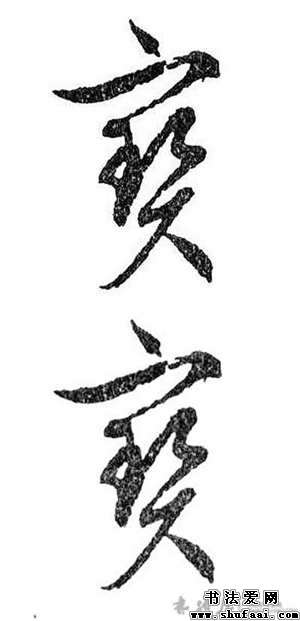 寳
寳
书法爱网
www.shufaai.com